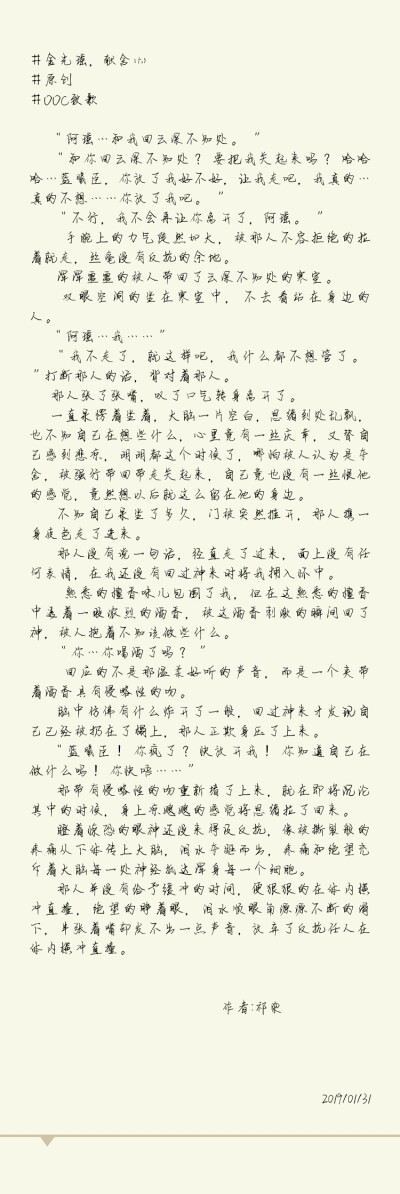 #金光瑶，献舍(六)
#原创
#OOC致歉
“阿瑶…和我回云深不知处。”
“和你回云深不知处？要把我关起来吗？哈哈
哈…蓝曦臣，你放了我好不好，让我走吧，我真的…
真的不想……你放了我吧。”
“不行，我不会再让你离开了，阿瑶。”
手腕上的力气陡然加大，被那人不容拒绝的拉
着就走，丝毫没有反抗的余地。
浑浑噩噩的被人带回了云深不知处的寒室。
双眼空洞的坐在寒室中，不去看站在身边的
人。
“阿瑶…我……”
“我不走了，就这样吧，我什么都不想管了。
”打断那人的话，背对着那人。
那人张了张嘴，叹了口气转身离开了。
一直呆愣着坐着，大脑一片空白，思绪到处乱飘，
也不知自己在想些什么，心里竟有一丝庆幸，又替自
己感到悲凉，明明都这个时候了，哪怕被人认为是夺
舍，被强行带回带走关起来，自己竟也没有一丝恨他
的感觉，竟然想以后就这么留在他的身边。
不知自己呆坐了多久，门被突然推开，那人携一
身夜色走了进来。
那人没有说一句话，径直走了过来，面上没有任
何表情，在我还没有回过神来时将我拥入怀中。
熟悉的檀香味儿包围了我，但在这熟悉的檀香
中裹着一股浓烈的酒香，被这酒香刺激的瞬间回了
神，被人抱着不知该做些什么。
“你…你喝酒了吗？”
回应的不是那温柔好听的声音，而是一个夹带
着酒香具有侵略性的吻。
脑中仿佛有什么炸开了一般，回过神来才发现自
己已经被扔在了榻上，那人正欺身压了上来。
“蓝曦臣！你疯了？快放开我！你知道自己在
做什么吗！你快唔……”
那带有侵略性的吻重新堵了上来，就在即将沉沦
其中的时候，身上凉飕飕的感觉将思绪拉了回来。
瞪着惊恐的眼神还没来得及反抗，像被撕裂般的
疼痛从下体传上大脑，泪水夺眶而出，疼痛和绝望充
斥着大脑每一处神经抵达浑身每一个细胞。
那人并没有给予缓冲的时间，便狠狠的在体内横
冲直撞，绝望的睁着眼，泪水顺眼角源源不断的滑
下，半张着嘴却发不出一点声音，放弃了反抗任人在
体内横冲直撞。
作者:祁奕
2019/01/31